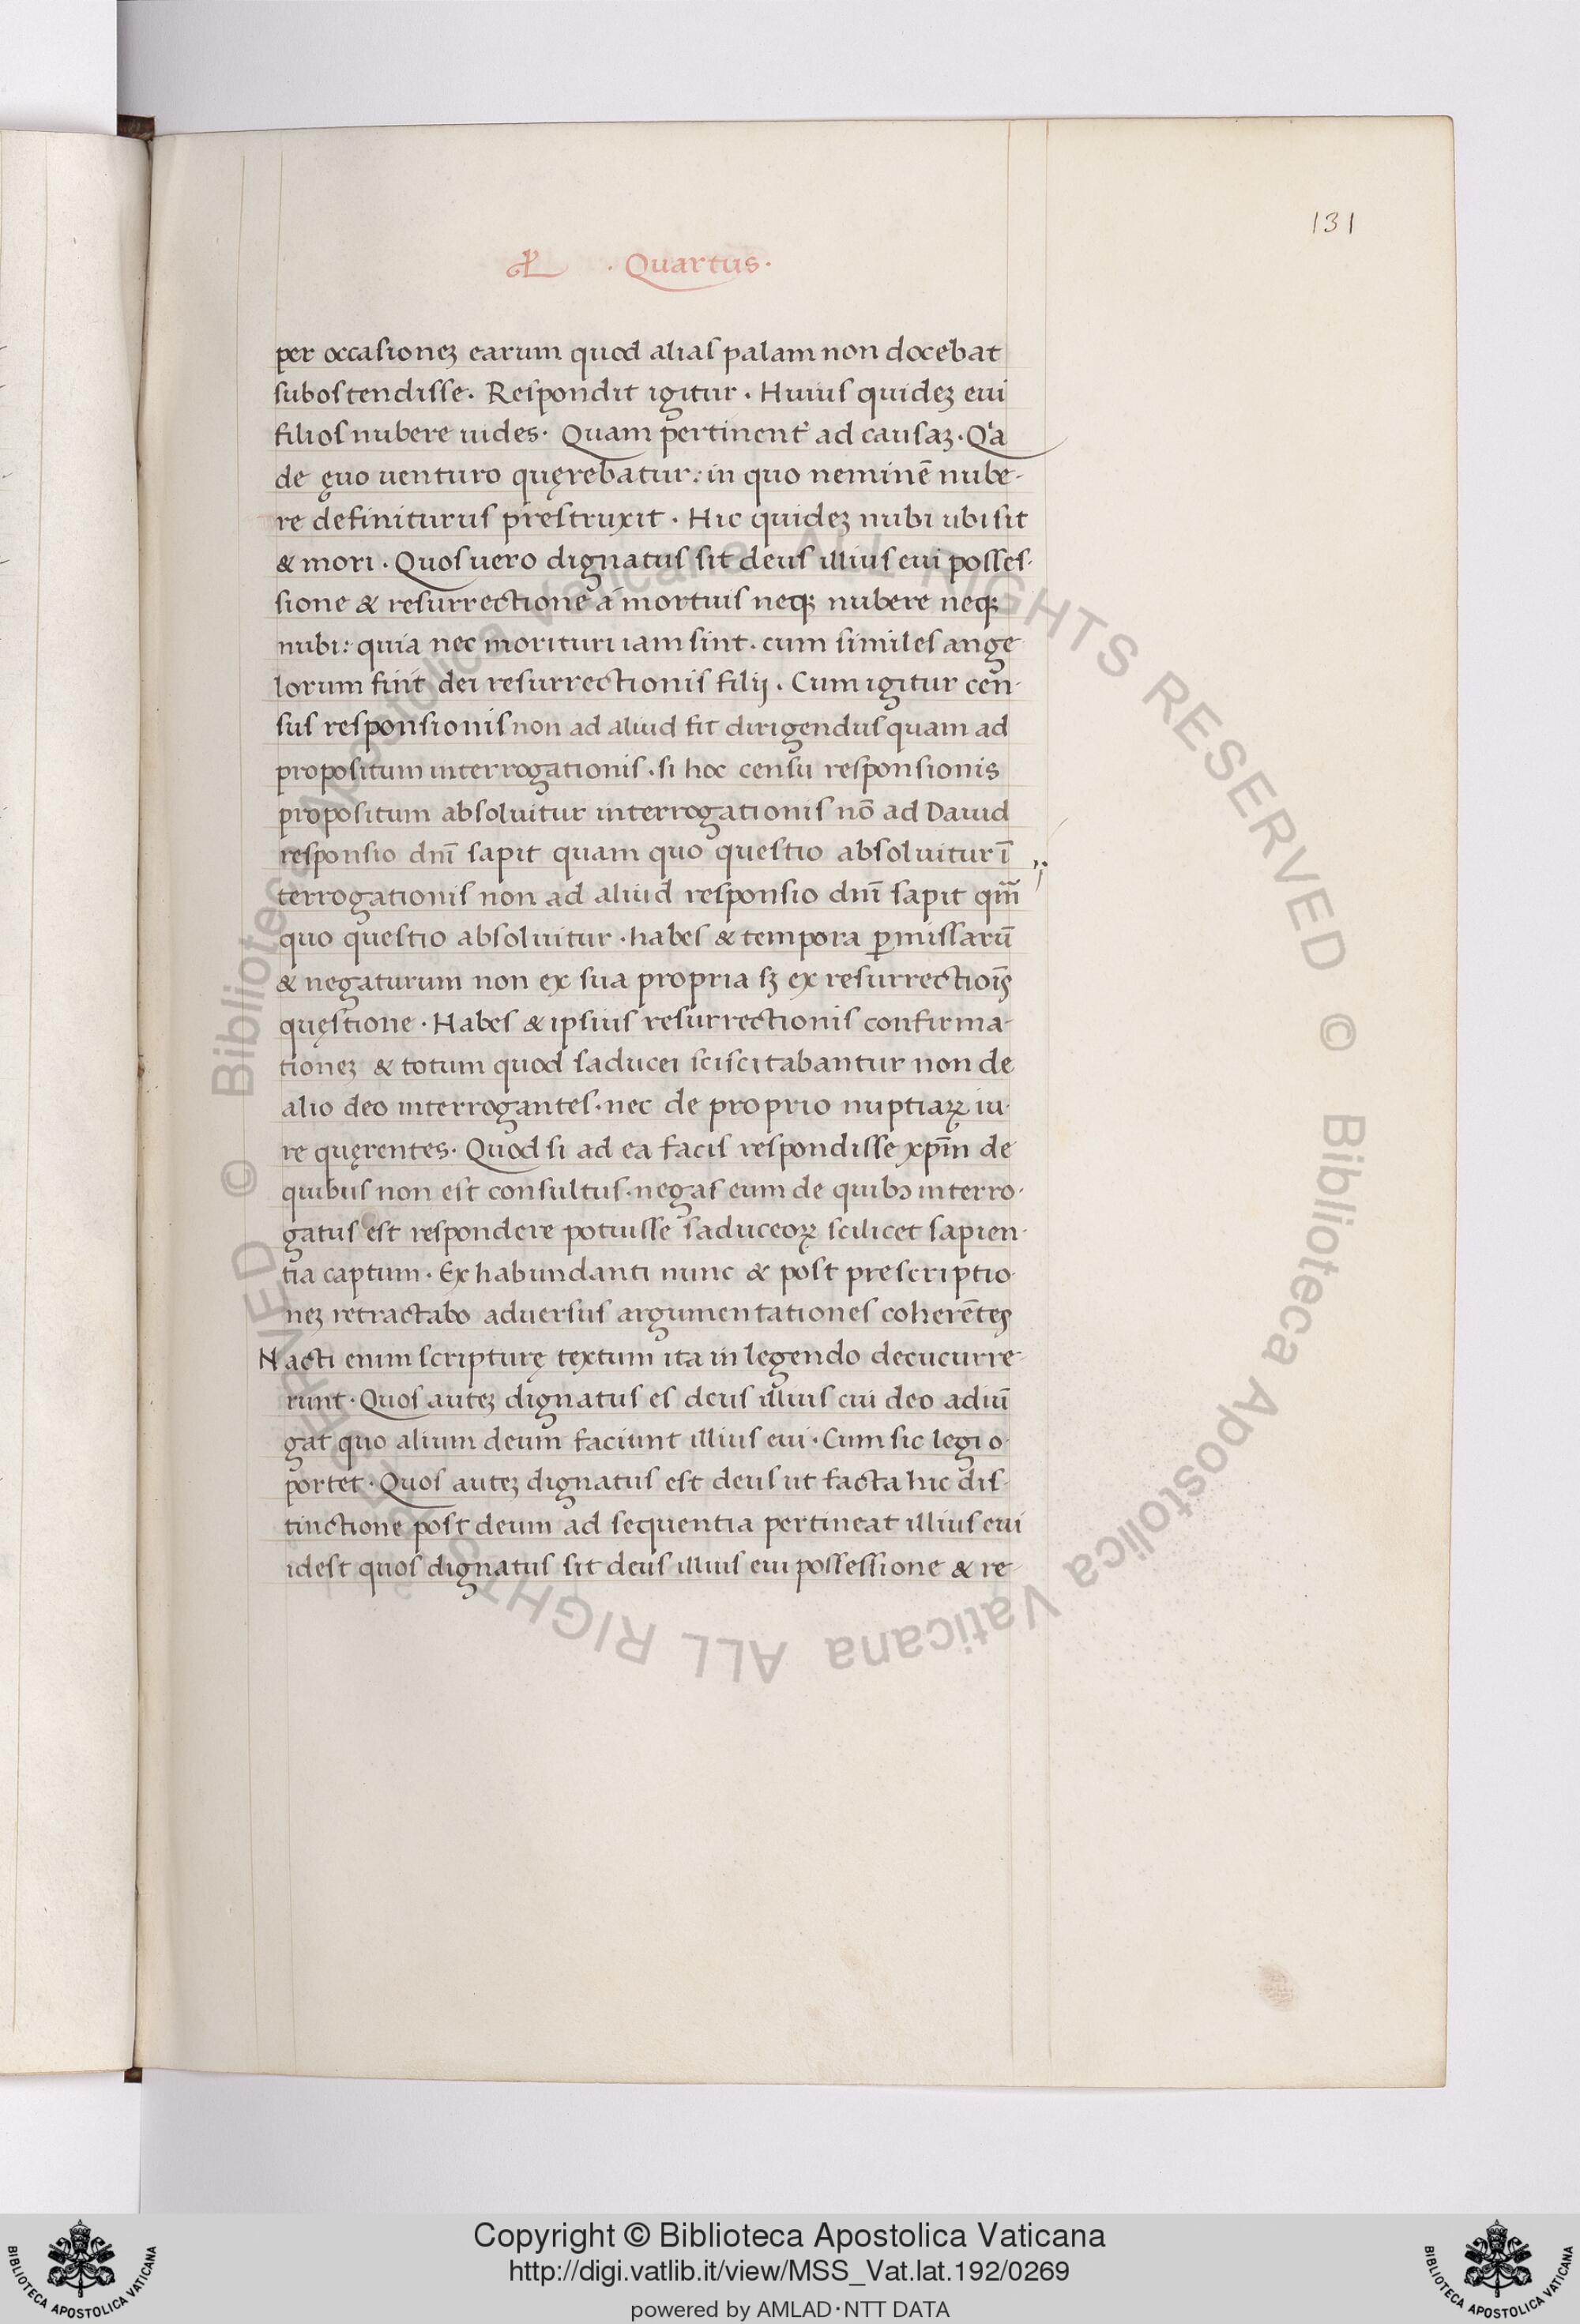 131
· Quartus ·
per occasioneꝫ earum quod alias palam non docebat
subostendisse. Respondit igitur. Huius quideꝫ eui
filios nubere uides. Quam pertinent̉ ad causaꝫ. Qͥa
de ęuo uenturo quęrebatur: in quo neminē nube-
re definiturus prestruxit. Hic quideꝫ nubi ubi sit
& mori. Quos uero dignatus sit deus illius eui posses-
sione & resurrectione a mortuis neqꝫ nubere neqꝫ
nubi: quia nec morituri iam sint. cum similes ange-
lorum fint dei resurrectionis filij. Cum igitur cen-
sus responsionis non ad aliud fit dirigendus quam ad
propositum interrogationis. si hoc censu responsionis
propositum absoluitur interrogationis nō ad Dauid
responsio dnī sapit quam quo questio absoluitur ī
terrogationis non ad aliud responsio dnī sapit qm̄
quo questio absoluitur. habes & tempora ꝑmissarū
& negaturum non ex sua propria sꝫ ex resurrectioīs
quęstione. Habes & ipsius resurrectionis confirma-
tioneꝫ & totum quod saducei sciscitabantur non de
alio deo interrogantes. nec de proprio nuptiaꝝ iu-
re quęrentes. Quod si ad ea facis respondisse xp̄m de
quibus non est consultus. negas eum de quibꝰ interro-
gatus est respondere potuisse saduceoꝝ scilicet sapien-
tia captum. Ex habundanti nunc & post prescriptio-
neꝫ retractabo aduersus argumentationes coherētes
Nacti enim scripturę textum ita in legendo decucurre-
runt. Quos auteꝫ dignatus es deus illius eui deo adiū
gat quo alium deum faciunt illius eui. Cum sic legi o-
portet. Quos auteꝫ dignatus est deus ut facta hic dis-
tinctione post deum ad sequentia pertineat illius eui
idest quos dignatus sit deus illius eui possessione & re-
© Biblioteca Apostolica Vaticana ALL RIGHTS RESERVED © Biblioteca Apostolica Vaticana ALL RIGHTS RESERVED
Copyright © Biblioteca Apostolica Vaticana
http://digi.vatlib.it/view/MSS_Vat.lat.192/0269
powered by AMLAD·NTT DATA
BIBLIOTECA APOSTOLICA VATICANA
BIBLIOTECA APOSTOLICA VATICANA